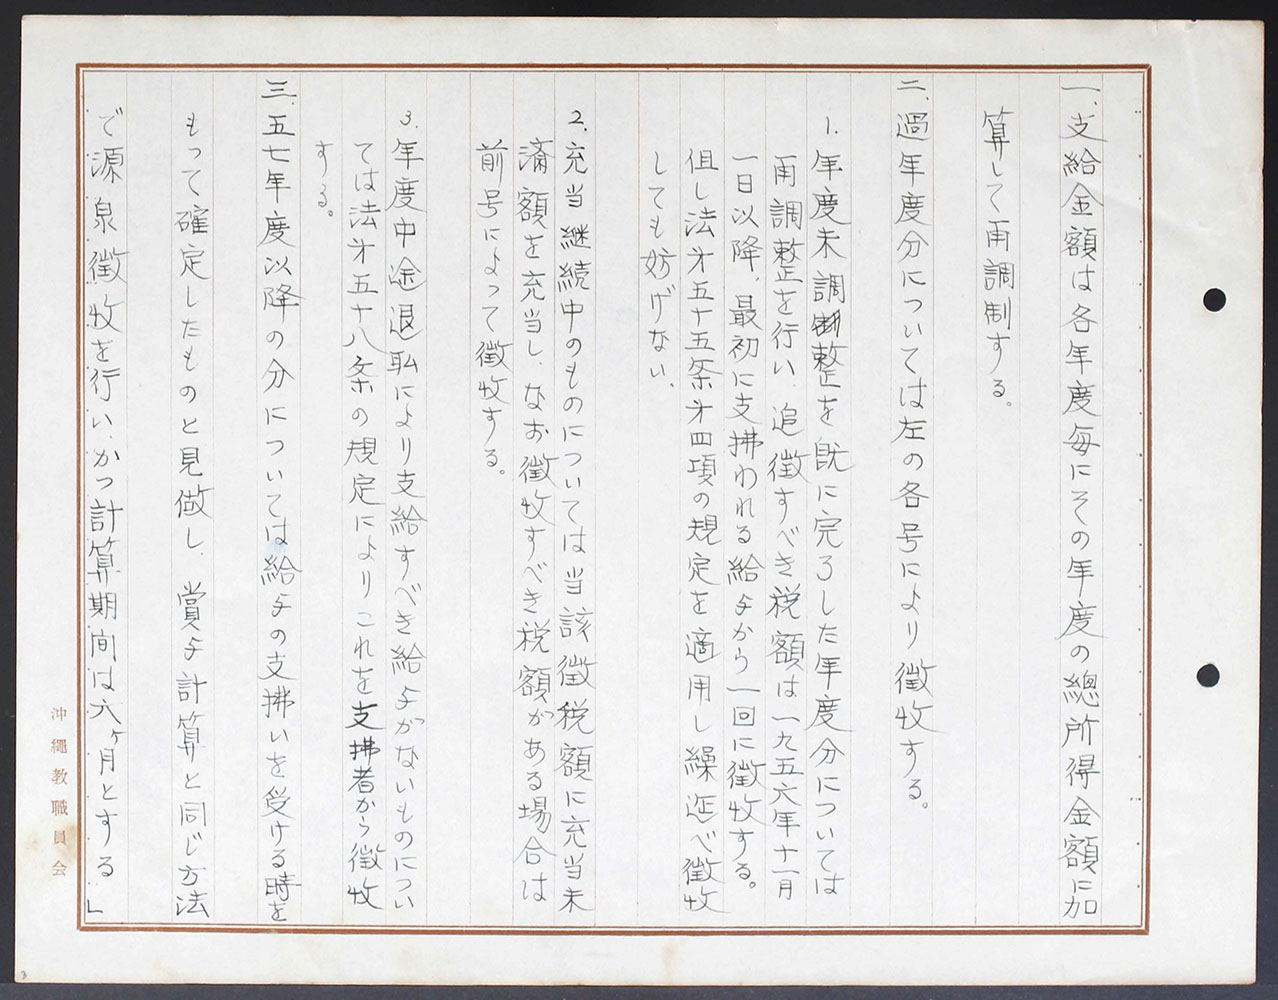 一、支給金額は各年度毎にその年度の總所得金額に加
算して再調制する。
二、過年度分については左の各号により徴收する。
1. 年度末調整を既に完了した年度分については
再調整を行い、追徴すべき税額は一九五六年十一月
一日以降、最初に支拂われる給与から一回に徴收する。
但し法才五十五条才四項の規定を適用し繰延べ徴收
しても妨げない、
2. 充当継続中のものについては当該徴税額に充当未
満額を充当し、なお徴收すべき税額がある場合は
前号によって徴收する。
3. 年度中途退耺により支給すべき給与がないものについ
ては法才五十八条の規定によりこれを支拂者から徴收
する。
三、五七年度以降の分については給与の支拂いを受ける時を
もって確定したものと見做し、賞与計算と同じ方法
で源泉徴收を行い、かつ計算期间は六ヶ月とする」
沖繩教職員会
3